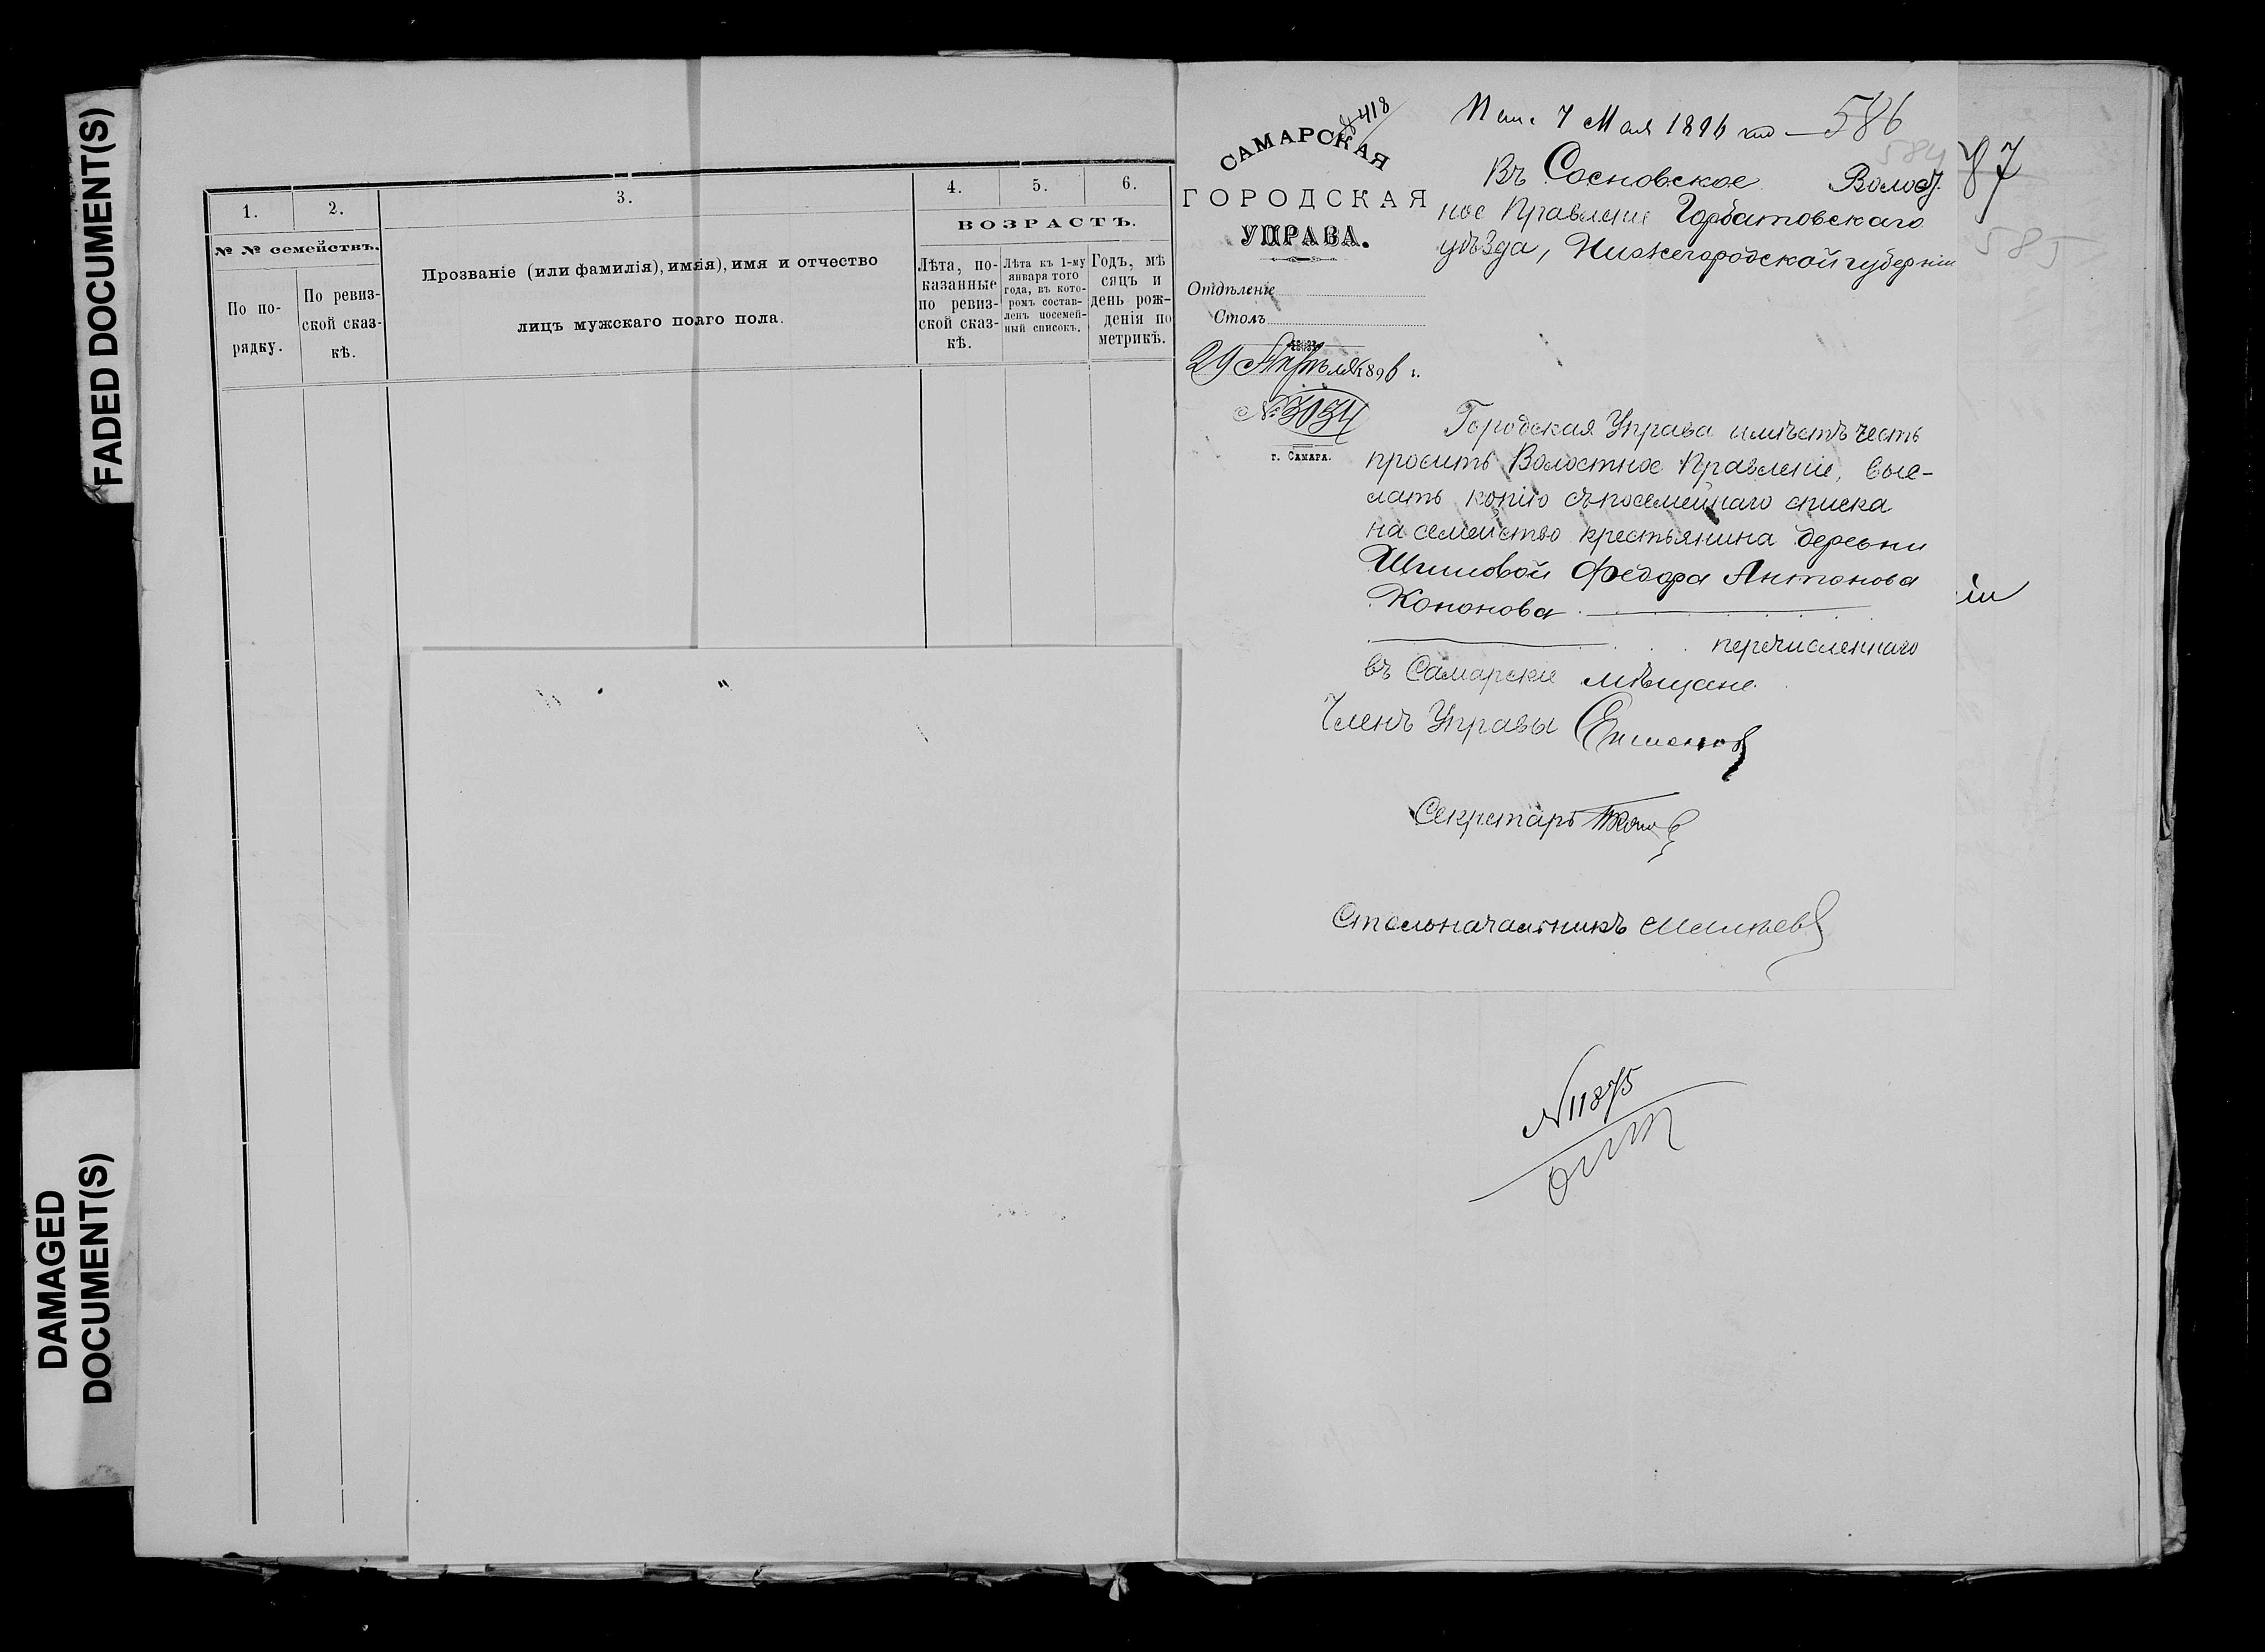 FADED DOCUMENT(S)
DAMAGED
DOCUMENT(S)
1.
2.
3.
4.
5.
6.
№ № семействъ.
ВОЗРАСТЪ.
По по-
рядку.
По ревиз-
ской сказ-
кѣ.
Прозваніе (или фамилія), имя и отчество
лицъ мужскаго пола.
Лѣта, по-
казанные
по ревиз-
ской сказ-
кѣ.
Лѣта къ 1-му
января того
года, въ кото-
ромъ состав-
ленъ посемей-
ный списокъ.
Годъ, мѣ
сяцъ и
день рож-
денія по
метрикѣ.
418
САМАРСКАЯ
ГОРОДСКАЯ
УПРАВА.
Отдѣленіе
Столъ
29 Апрѣля 1896 г.
№ 3034
г. САМАРА.
7 Мая 1896 586
584
87
585
Въ Сосновское Волост-
ное Правленіе Горбатовскаго
уѣзда, Нижегородской губерніи
Городская Управа имѣетъ честь
просить Волостное Правленіе, выс-
лать копію съ посемейнаго списка
на семейство крестьянина деревни
Шишовой Федора Антонова
Кононова
іи
перечисленнаго
въ Самарскіе мѣщане.
Членъ Управы
Секретарь
Столоначальникъ
№ 11875